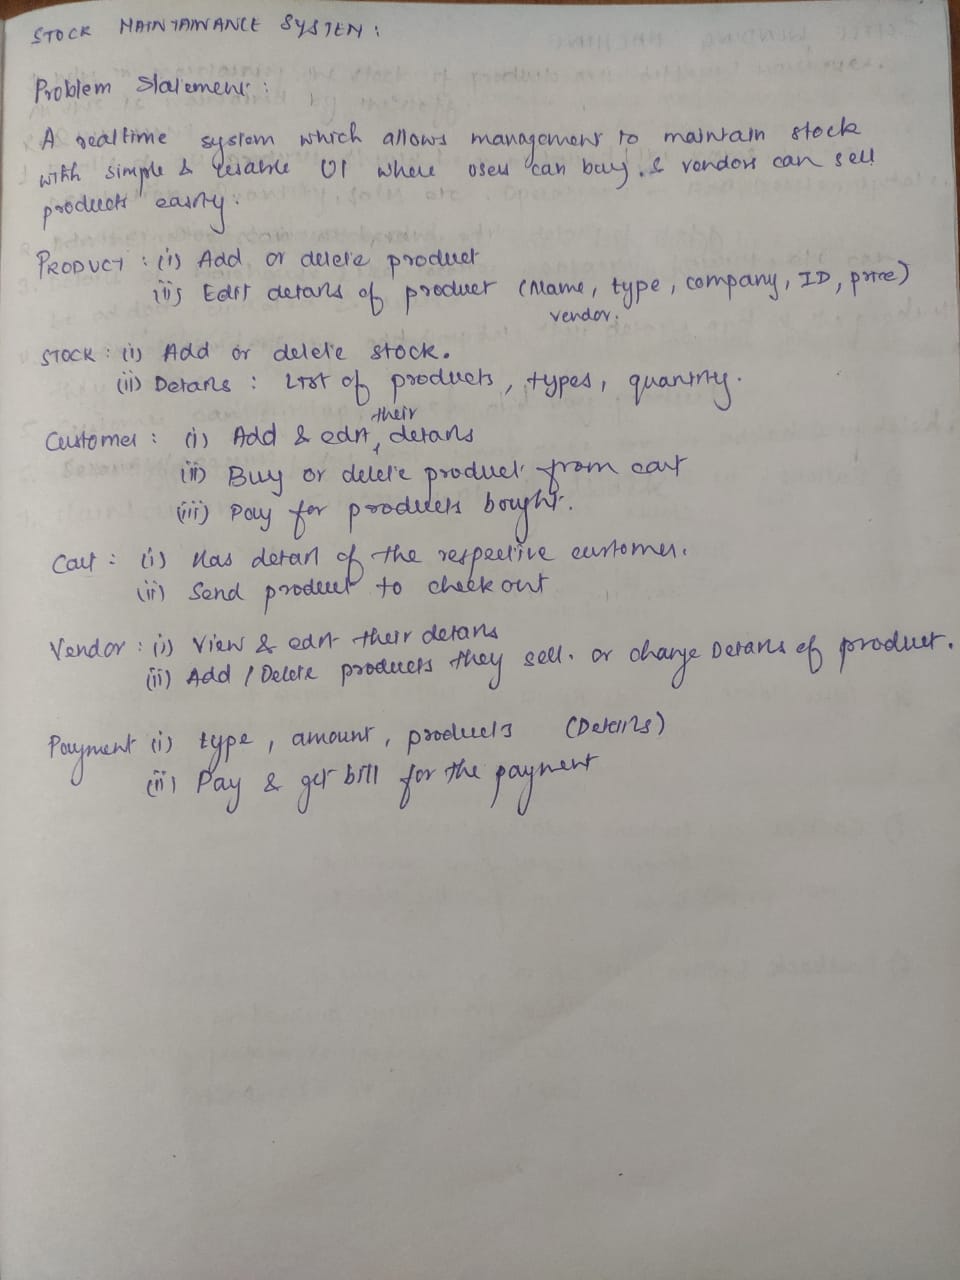 STOCK MAINTAINANCE SYSTEM :
Problem Statement :
A realtime system which allows management to maintain stock
with simple & usable UI where users can buy & vendors can sell
products easily.
PRODUCT : (i) Add or delete product
(ii) Edit details of product (Name, type, company, ID, price)
vendor.
STOCK : (i) Add or delete stock.
(ii) Details : List of products, types, quantity.
their
Customer : (i) Add & edit details
(ii) Buy or delete product from cart
(iii) Pay for products bought.
Cart : (i) Has detail of the respective customer.
(ii) Send product to check out
Vendor : (i) View & edit their details
(ii) Add / Delete products they sell. or change Details of product.
Payment (i) type, amount, products (Details)
(ii) Pay & get bill for the payment